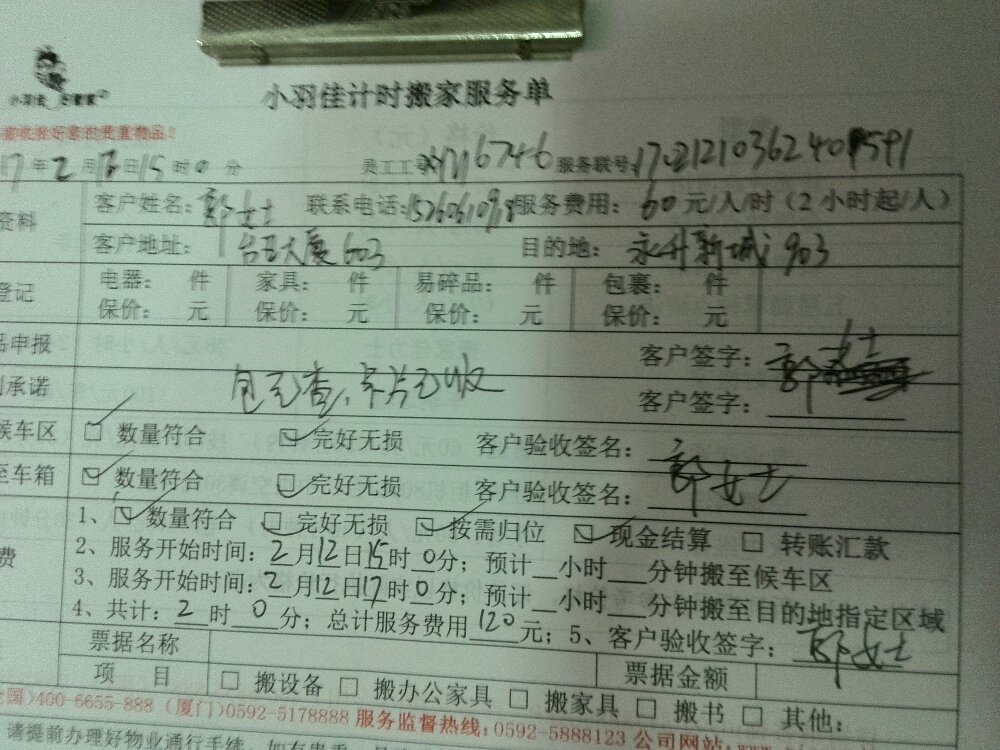 小羽佳计时搬家服务单
17年2月12日15时0分 员工工号 6746 服务联号
资料 客户姓名:郭女士 联系电话: 服务费用:60元/人/时(2小时起/人)
客户地址:台亚大厦603 目的地:永升新城 903
登记 电器: 件 家具: 件 易碎品: 件 包裹: 件
保价: 元 保价: 元 保价: 元 保价: 元
申报 客户签字:郭女士
承诺 包已查、卡片已收 客户签字:
候车区 □ 数量符合 ☑ 完好无损 客户验收签名:
至车箱 ☑ 数量符合 ☑ 完好无损 客户验收签名:郭女士
1、☑ 数量符合 ☑ 完好无损 ☑ 按需归位 ☑ 现金结算 □ 转账汇款
费 2、服务开始时间:2月12日15时0分;预计__小时___分钟搬至候车区
3、服务开始时间:2月12日17时0分;预计__小时___分钟搬至目的地指定区域
4、共计:2时0分;总计服务费用120元;5、客户验收签字:郭女士
票据名称
项 目 □ 搬设备 □ 搬办公家具 □ 搬家具 □ 搬书 □ 其他: 票据金额
全国)400-6655-888 (厦门)0592-5178888 服务监督热线:0592-5888123 公司网站:www.
请提前办理好物业通行手续,如有贵重